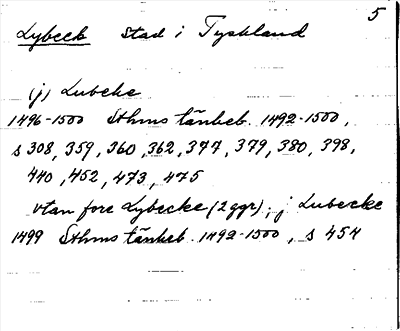 5
Lybeck stad i Tyskland
(j) Lubeke
1496-1500 Sthms tänkeb. 1492-1500,
s 308, 359, 360, 362, 377, 379, 380, 398,
440, 452, 473, 475
vtan fore Lybecke (2 ggr), j Lubecke
1499 Sthms tänkeb. 1492-1500, s 454